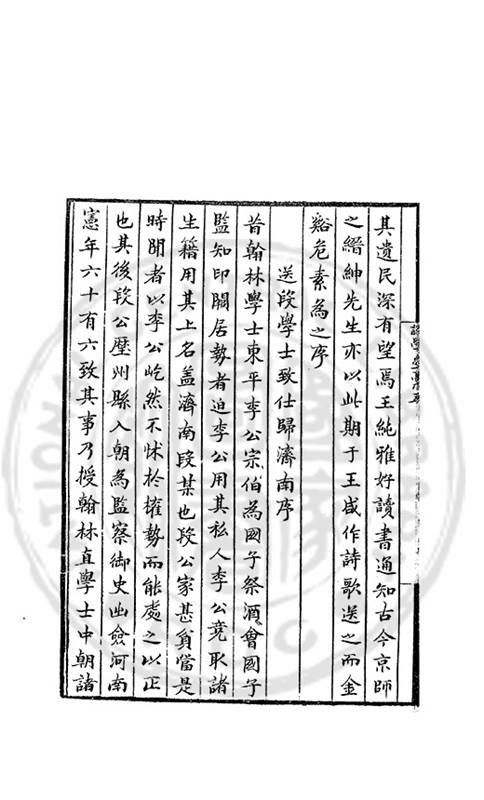 其遺民深有望焉王純雅好讀書通知古今京師
之縉紳先生亦以此期于王咸作詩歌送之而金
谿危素為之序
送段學士致仕歸濟南序
昔翰林學士東平李公宗伯為國子祭酒會國子
監知印闕居勢者迫李公用其私人李公竟取諸
生籍用其上名蓋濟南段某也段公家甚貧當是
時聞者以李公屹然不怵於權勢而能處之以正
也其後段公歷州縣入朝為監察御史出僉河南
憲年六十有六致其事乃授翰林直學士中朝諸